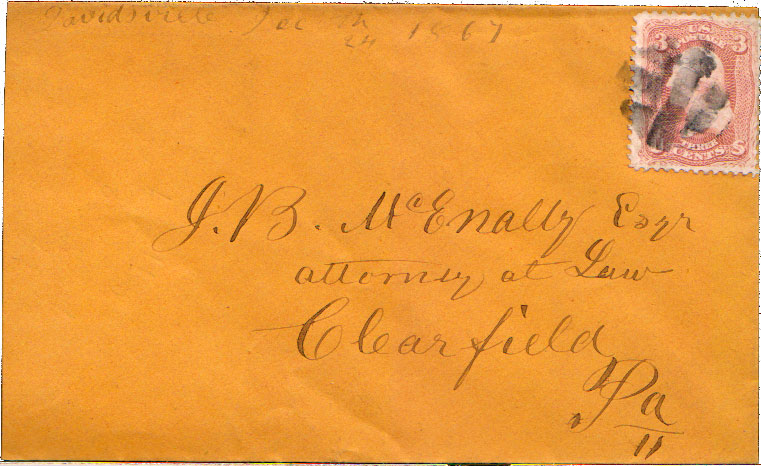 Davidsville Dec 24th 1867
3 U.S. POSTAGE 3
THREE CENTS
J. B. McEnally Esqr
attorney at Law
Clearfield
Pa